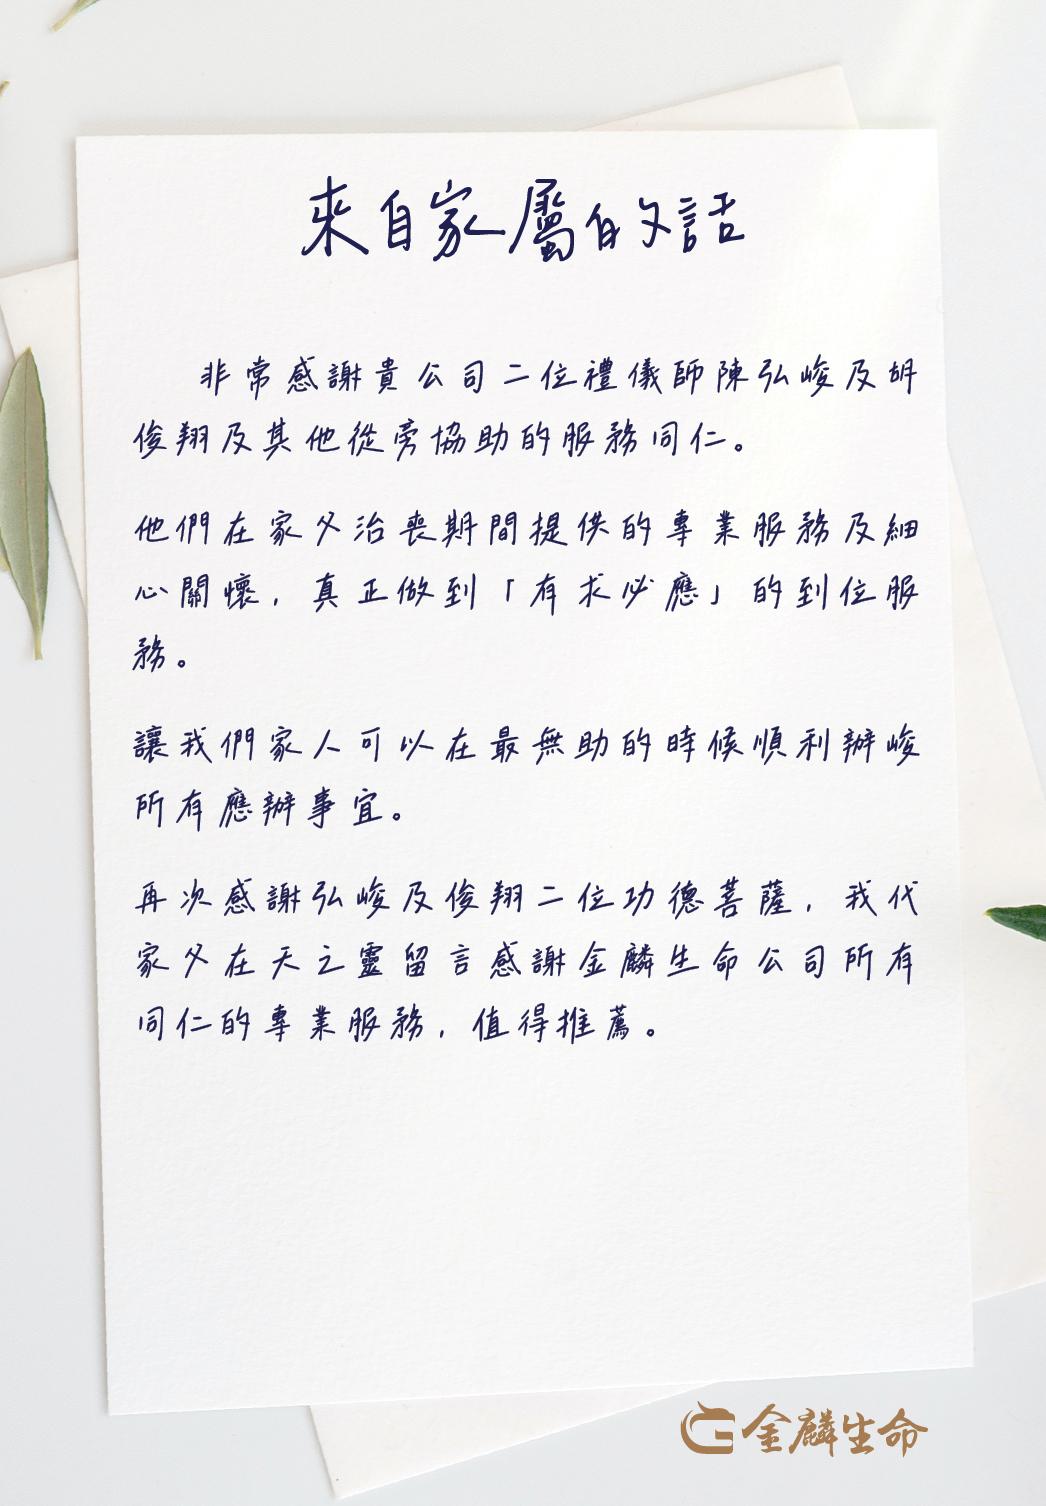 來自家屬的話
非常感謝貴公司二位禮儀師陳弘峻及胡
俊翔及其他從旁協助的服務同仁。
他們在家父治喪期間提供的專業服務及細
心關懷，真正做到「有求必應」的到位服
務。
讓我們家人可以在最無助的時候順利辦峻
所有應辦事宜。
再次感謝弘峻及俊翔二位功德菩薩，我代
家父在天之靈留言感謝金麟生命公司所有
同仁的專業服務，值得推薦。
金麟生命